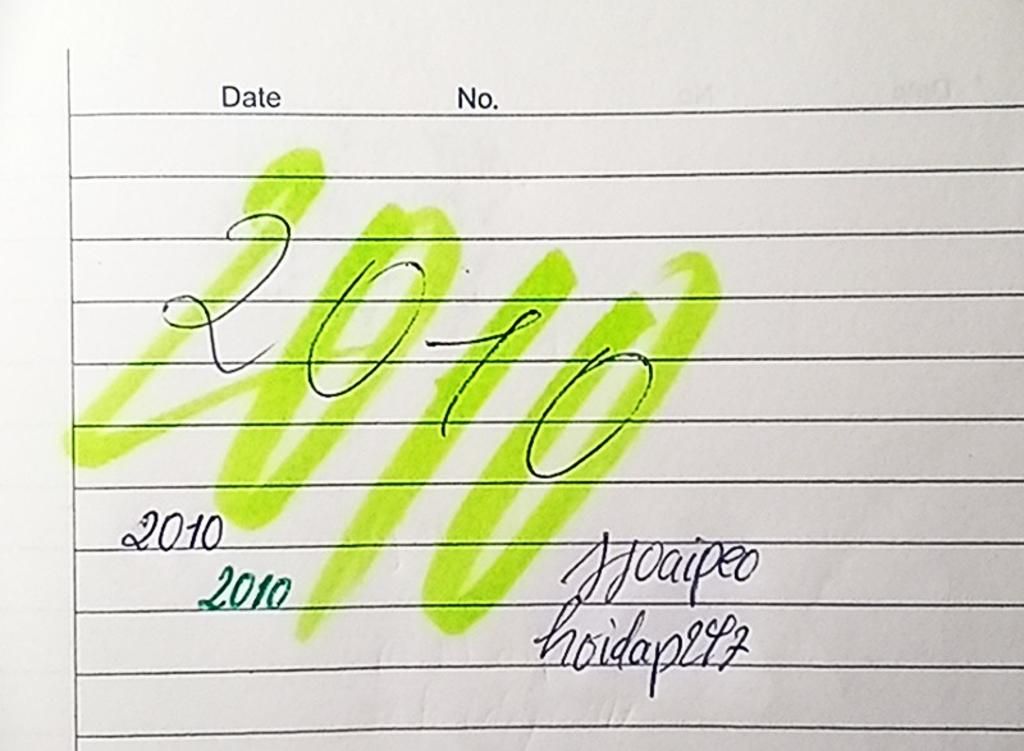 Date No.
2010
2010
2010
2010
Hoaipeo
hoidap247